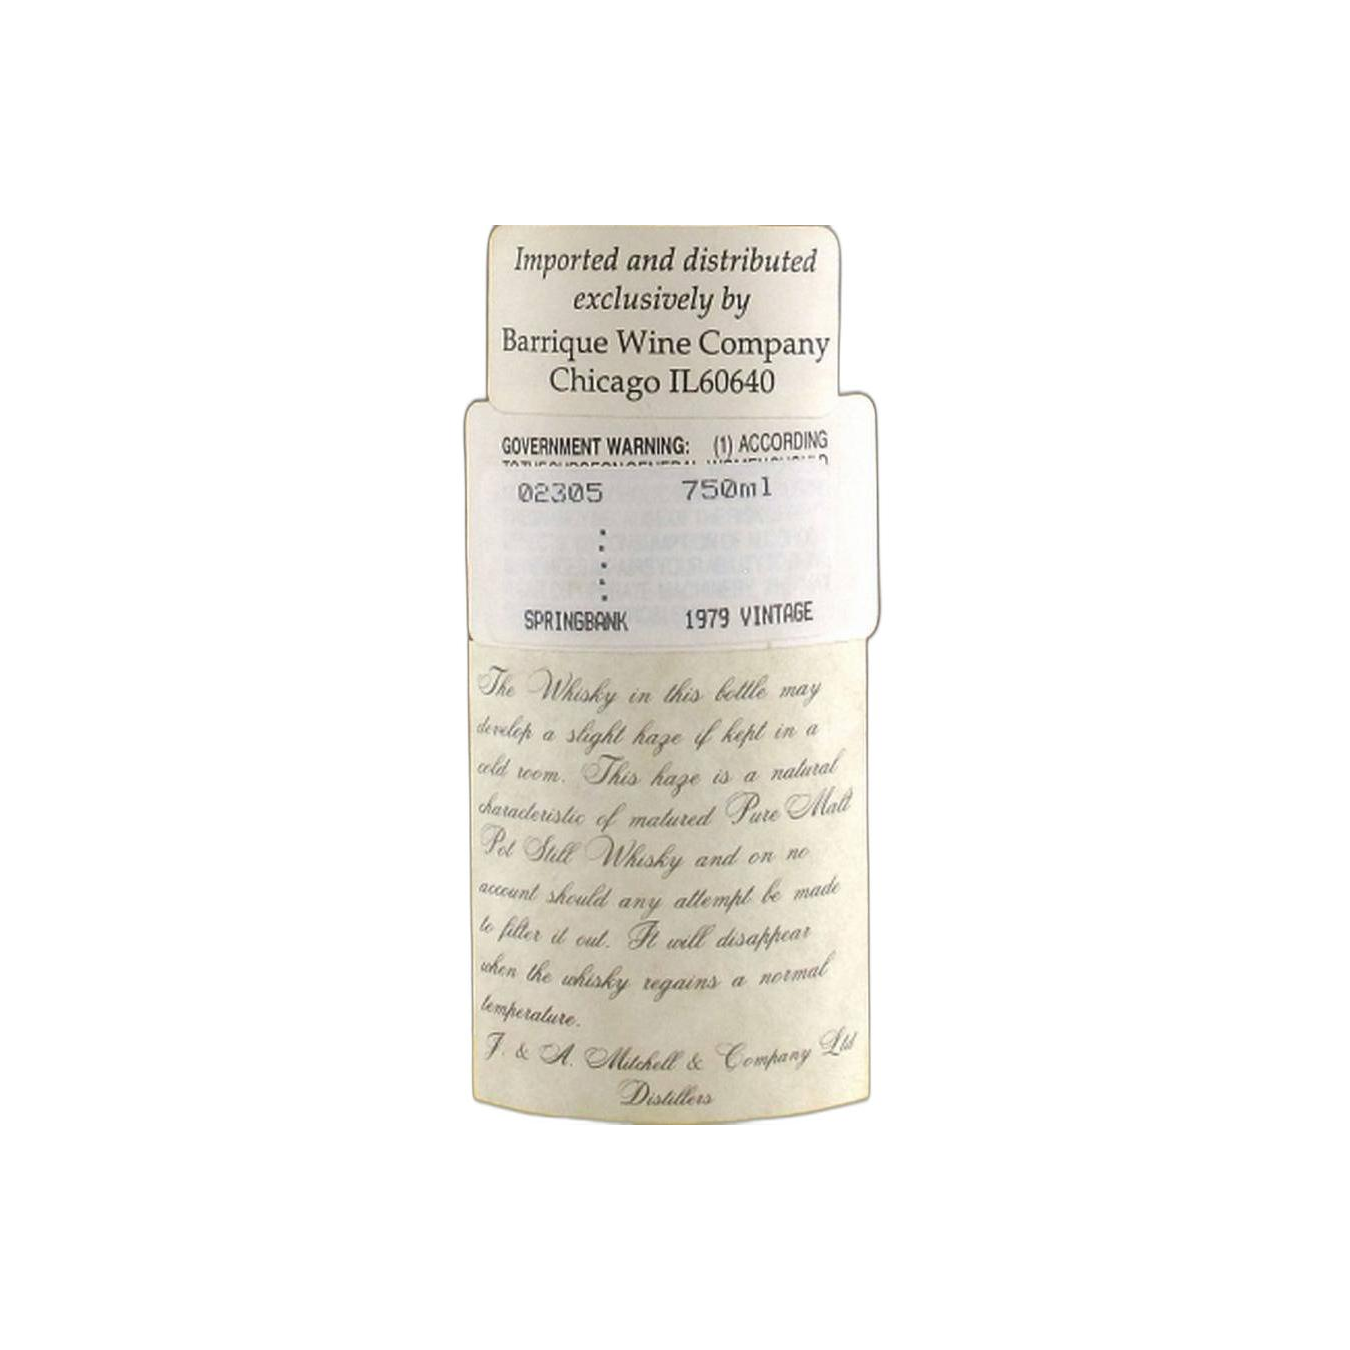 Imported and distributed
exclusively by
Barrique Wine Company
Chicago IL60640
GOVERNMENT WARNING: (1) ACCORDING
TO THE SURGEON GENERAL WOMEN SHOULD
02305 750ml
SPRINGBANK 1979 VINTAGE
The Whisky in this bottle may
develop a slight haze if kept in a
cold room. This haze is a natural
characteristic of matured Pure Malt
Pot Still Whisky and on no
account should any attempt be made
to filter it out. It will disappear
when the whisky regains a normal
temperature.
J. & A. Mitchell & Company Ltd
Distillers